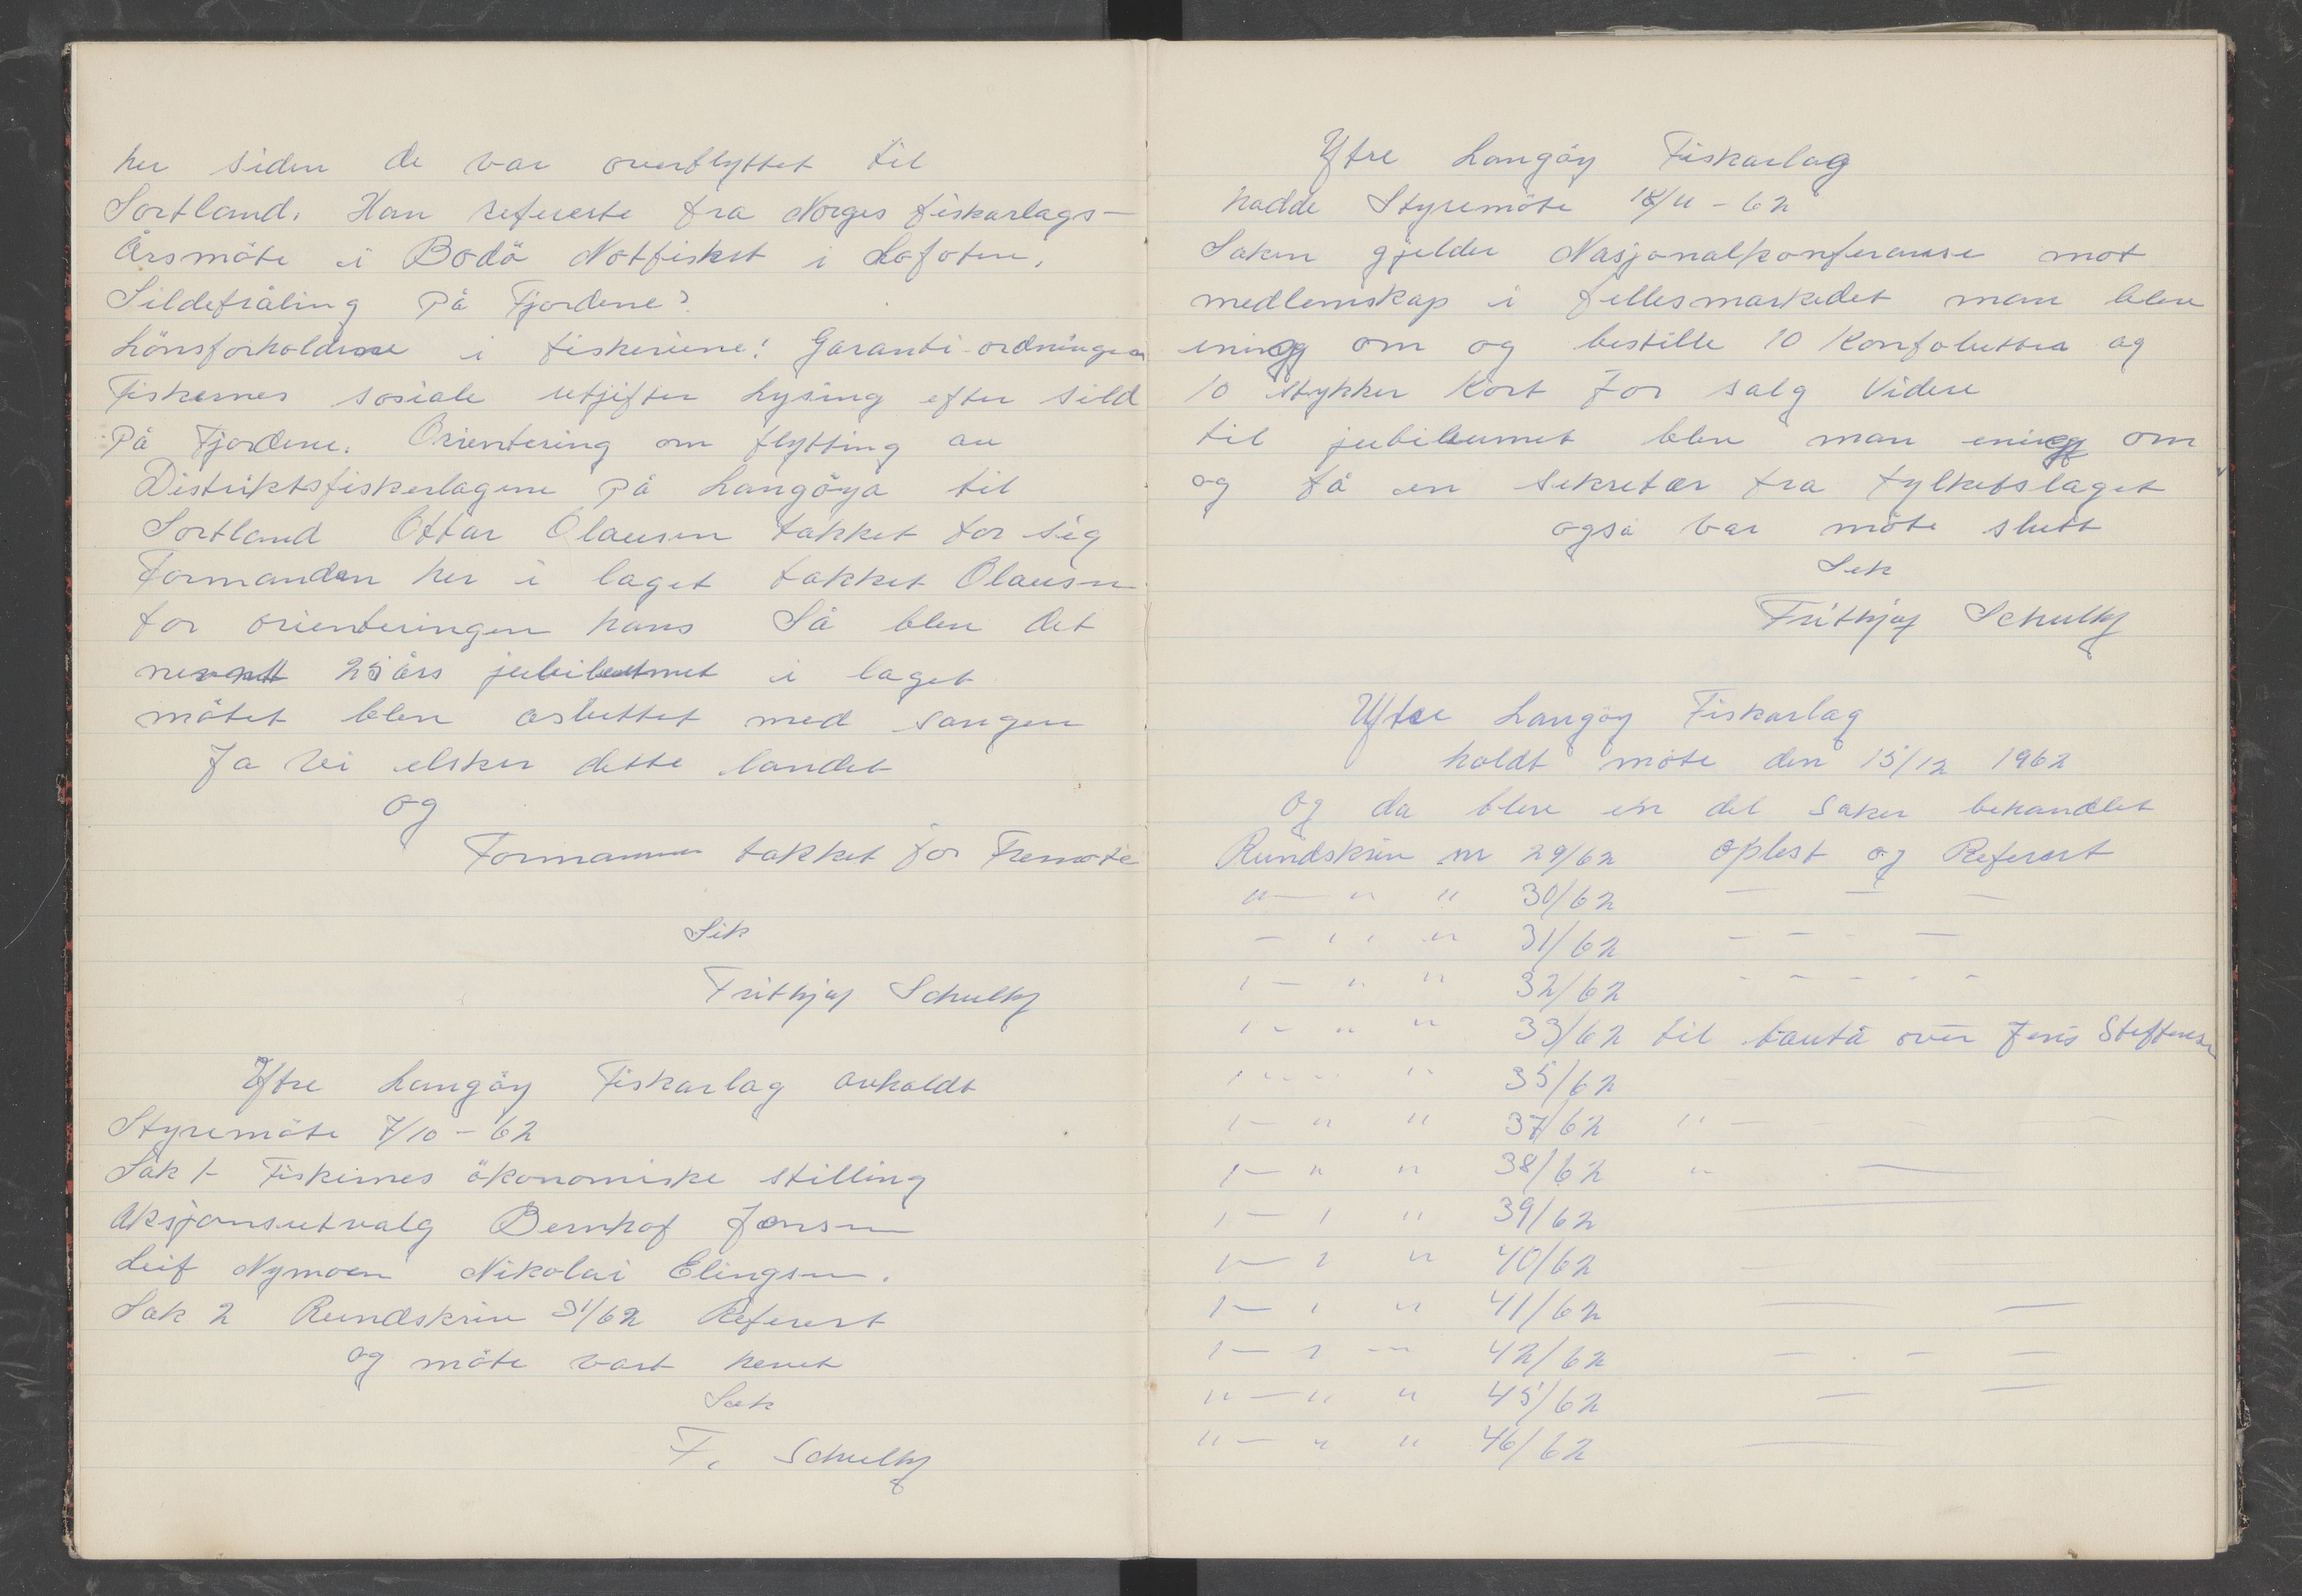 her siden de var overflyttet til
Sortland. Han refererte fra Norges fiskarlags-
Årsmöte i Bodö Notfisket i Lofoten,
Sildetråling på Fjordene?
Lönsforholdene i fiskeriene! Garanti-ordningen
Fiskernes sosiale utjifter Lysing efter sild
På Fjordene. Orientering om flytting av
Distriktsfiskerlagene på Langöya til
Sortland Ottar Olausen takket for sig
Formanden her i laget takket Olausen
for orienteringen hans Så blev det
nevnt 25 års jubileumet i laget
mötet blev asluttet med sangen
Ja Vi elsker dette landet
og
Formannen takket for Fremöte
Sek
Frithjof Schultz
Yttre Langöy Fiskarlag avholdt
Styremöte 7/10 - 62
Sak 1- Fiskernes ökonomiske stilling
Aksjonsutvalg Bernhof Jensen
Leif Nymoen Nikolai Elingsen.
Sak 2 Rundskriv 31/62 Referert
og möte vart hevet
Sek
F. Schultz
Yttre Langöy Fiskarlag
hadde Styremöte 18/11 - 62
Saken gjelder Nasjonalkonferanse mot
medlemskap i fellesmarkedet man blev
ening om og bestille 10 Konfolutter og
10 stykker Kort for salg Videre
til jubileumet blev man ening om
og få en sekretær fra fylketslaget
også var möte slutt
Sek
Frithjof Schultz
Yttre Langöy Fiskarlag
holdt möte den 15/12 1962
og da blev en del saker behandlet
Rundskriv nr 29/62 oplest og Referert
"— " " 30/62 — — —
— " " 31/62 - - - —
"— " " 32/62 - - - - -
"- " " 33/62 til bauta over Jens Steffensen
" - - " 35/62
"- " " 37/62 " —
"— " " 38/62 " —
"— " " 39/62 —
"— " " 40/62 —
"— " " 41/62 — —
"— " " 42/62 — - - —
"— " " 45/62 — —
"— " " 46/62 —